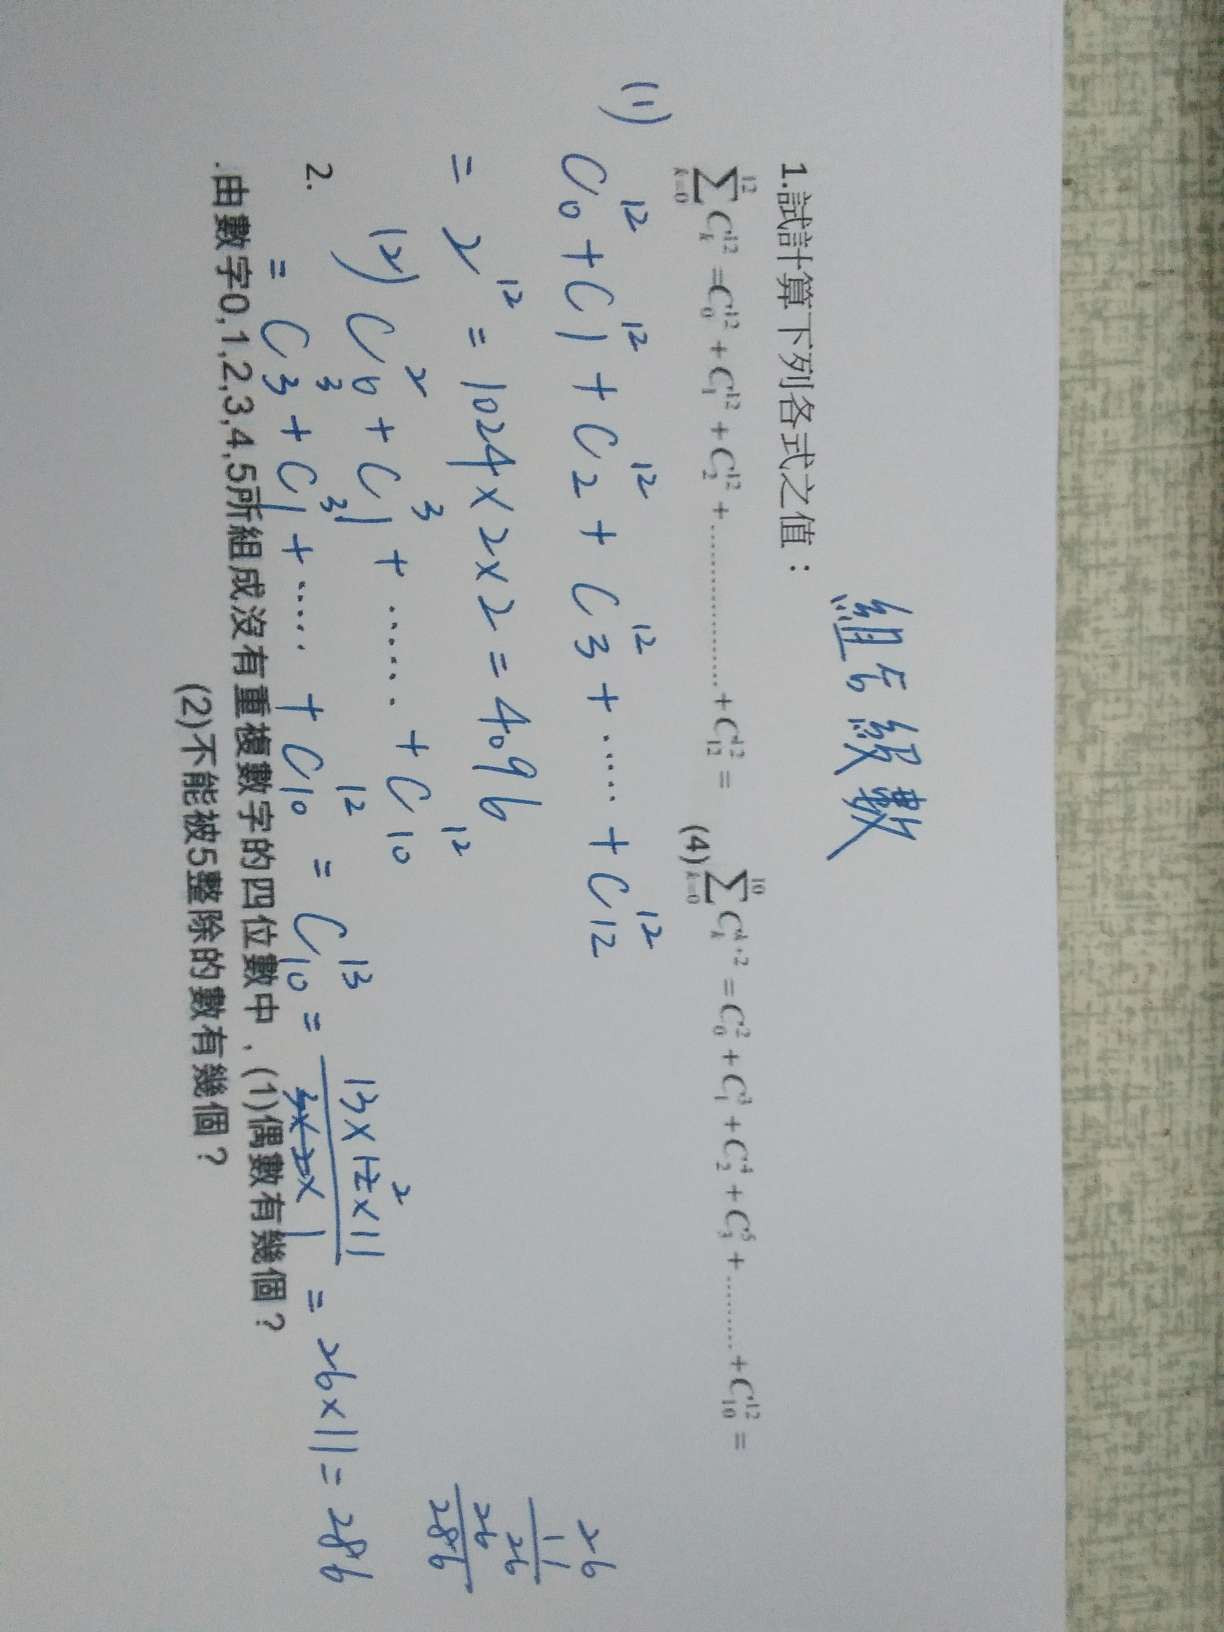 組合級數
1.試計算下列各式之值：
∑_{k=0}^{12} C_k^{12} =C_0^{12} + C_1^{12} + C_2^{12} +………………+C_{12}^{12} = (4)∑_{k=0}^{10} C_k^{k+2} =C_0^2 + C_1^3 + C_2^4 + C_3^5 +………+C_{10}^{12} =
(1)
C_0^{12} + C_1^{12} + C_2^{12} + C_3^{12} + ..... + C_{12}^{12}
= 2^{12} = 1024 x 2 x 2 = 4096
(2) C_0^2 + C_1^3 + ...... + C_{10}^{12}
= C_3^3 + C_1^3 + ..... + C_{10}^{12} = C_{10}^{13} = 13 x 12 x 11 / 3 x 2 x 1 = 26 x 11 = 286
2
26
11
26
26
286
2.
.由數字0,1,2,3,4,5所組成沒有重複數字的四位數中，(1)偶數有幾個？
(2)不能被5整除的數有幾個？